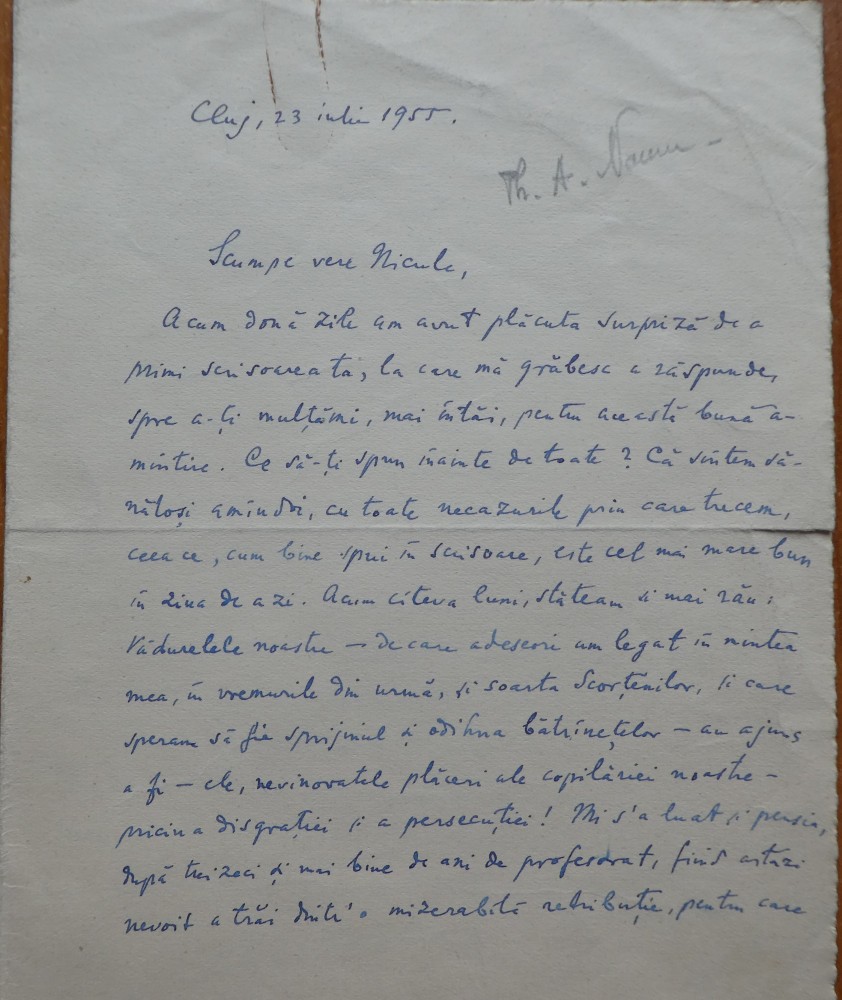 Cluj, 23 iulie 1955.
Th. A. Naum
Scumpe vere Nicule,
Acum două zile am avut plăcuta surpriză de a
primi scrisoarea ta, la care mă grăbesc a răspunde,
spre a-ți mulțămi, mai întâi, pentru această bună a-
mintire. Ce să-ți spun înainte de toate? Că sîntem să-
nătoși amîndoi, cu toate necazurile prin care trecem,
ceea ce, cum bine spui în scrisoare, este cel mai mare bun
în ziua de azi. Acum cîteva luni, stăteam și mai rău:
Vădurelele noastre — de care adeseori am legat în mintea
mea, în vremurile din urmă, și soarta Scorțenilor, și care
speram să fie sprijinul și odihna bătrînețelor — au ajuns
a fi — ele, nevinovatele plăceri ale copilăriei noastre —
pricina disgrației și a persecuției! Mi s'a luat și pensia,
după treizeci și mai bine de ani de profesorat, fiind astăzi
nevoit a trăi dintr'o mizerabilă retribuție, pentru care